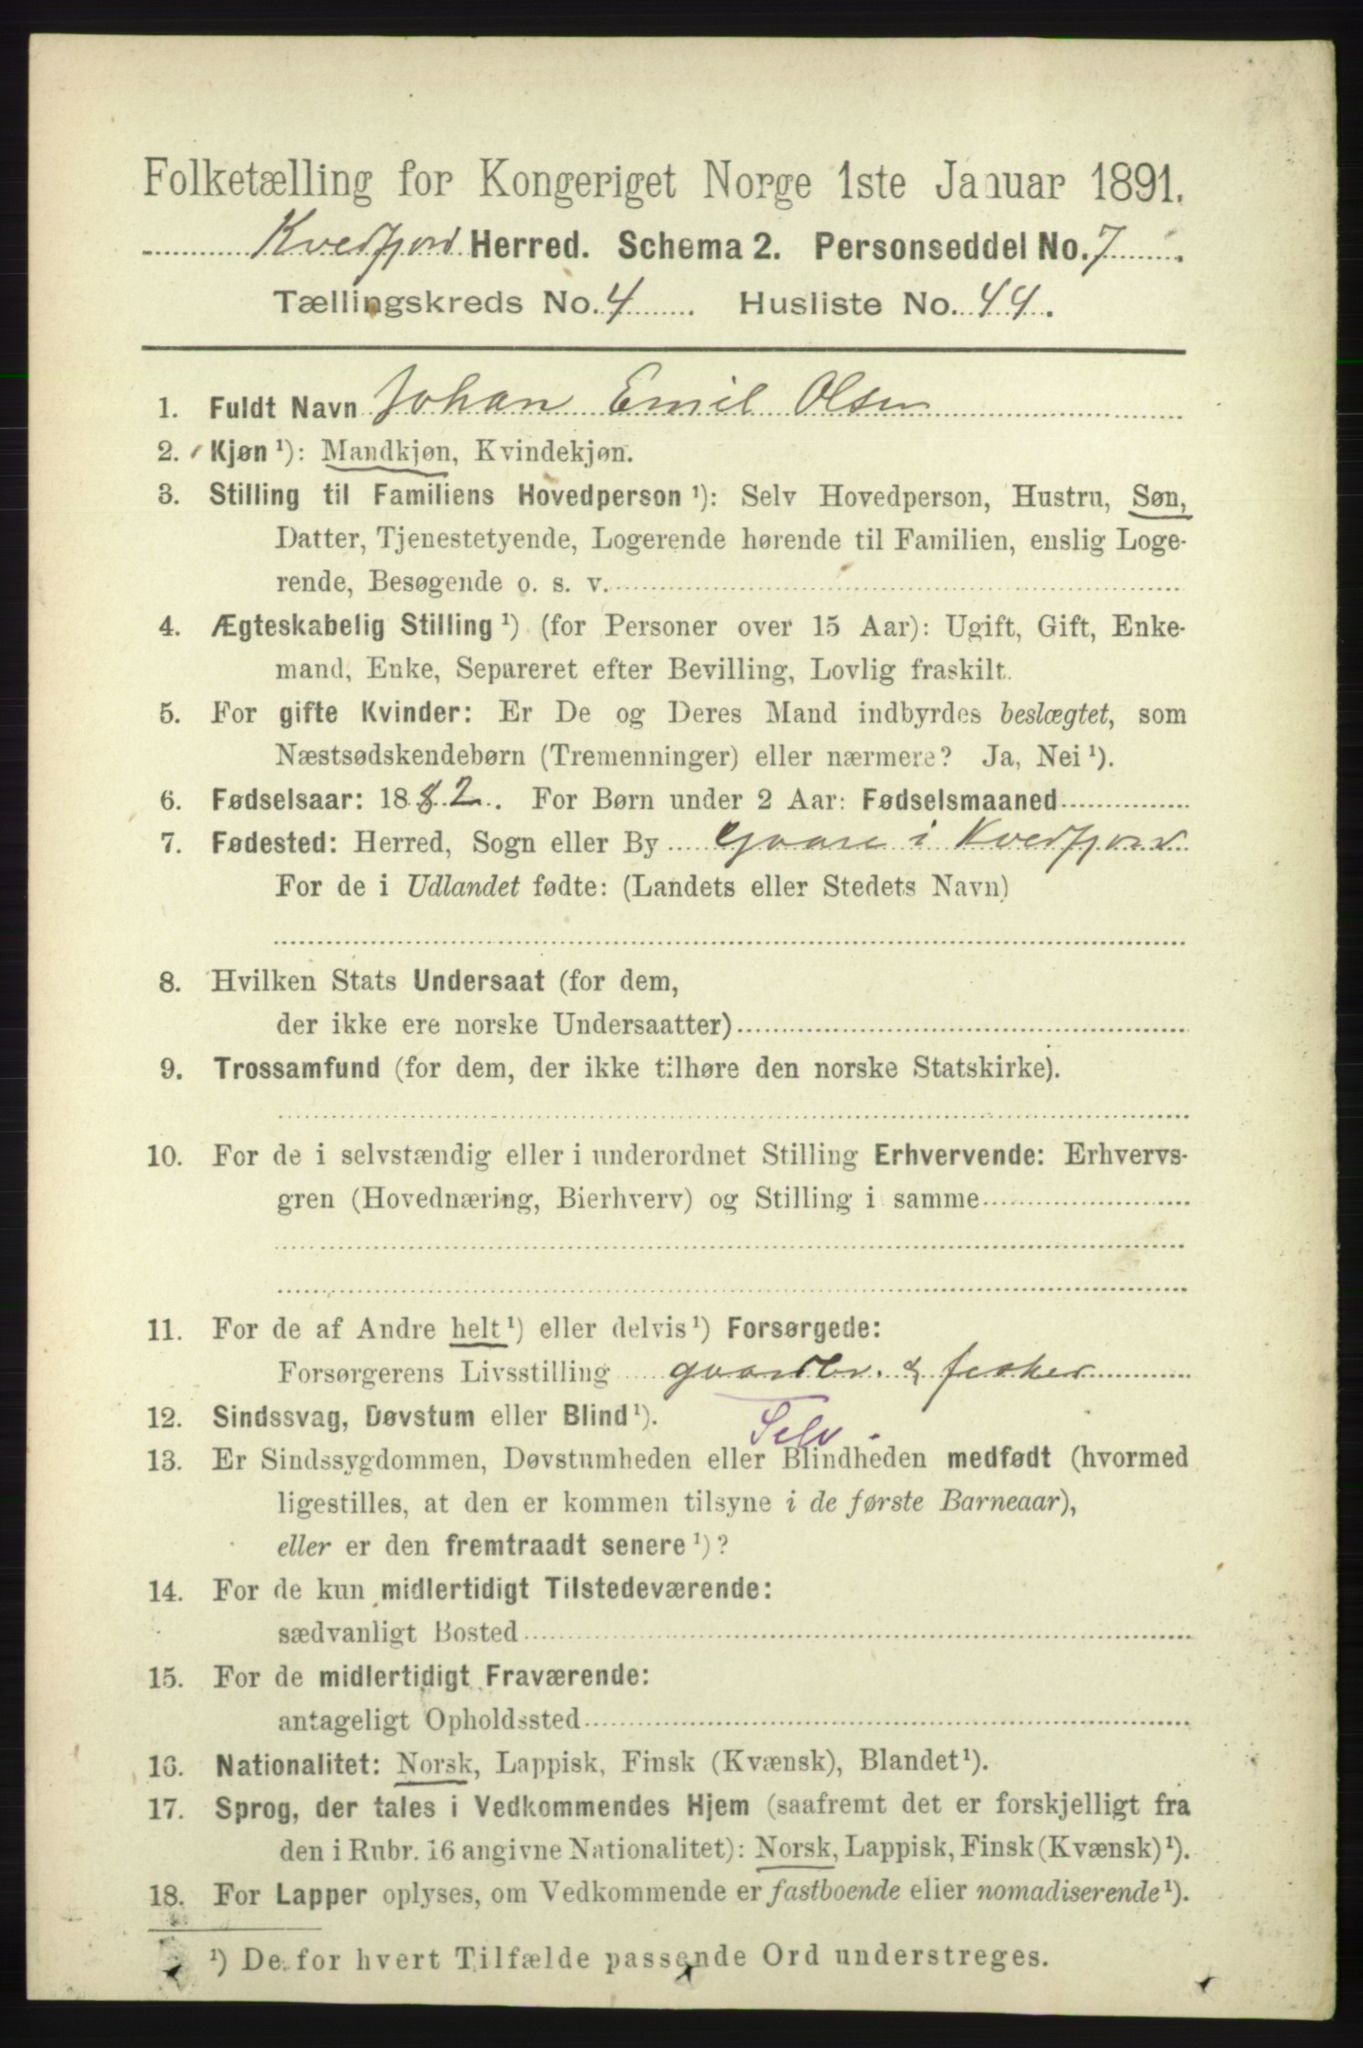 Folketælling for Kongeriget Norge 1ste Januar 1891.
Kvedfjord Herred. Schema 2. Personseddel No. 7
Tællingskreds No. 4 Husliste No. 44.
1. Fuldt Navn Johan Emil Olsen
2. Kjøn ¹): Mandkjøn, Kvindekjøn.
3. Stilling til Familiens Hovedperson ¹): Selv Hovedperson, Hustru, Søn,
Datter, Tjenestetyende, Logerende hørende til Familien, enslig Loge-
rende, Besøgende o. s. v.
4. Ægteskabelig Stilling ¹) (for Personer over 15 Aar): Ugift, Gift, Enke-
mand, Enke, Separeret efter Bevilling, Lovlig fraskilt.
5. For gifte Kvinder: Er De og Deres Mand indbyrdes beslægtet, som
Næstsødskendebørn (Tremenninger) eller nærmere? Ja, Nei ¹).
6. Fødselsaar: 1882. For Børn under 2 Aar: Fødselsmaaned
7. Fødested: Herred, Sogn eller By i Kvedfjord
For de i Udlandet fødte: (Landets eller Stedets Navn)
8. Hvilken Stats Undersaat (for dem,
der ikke ere norske Undersaatter)
9. Trossamfund (for dem, der ikke tilhøre den norske Statskirke).
10. For de i selvstændig eller i underordnet Stilling Erhvervende: Erhvervs-
gren (Hovednæring, Bierhverv) og Stilling i samme
11. For de af Andre helt ¹) eller delvis ¹) Forsørgede:
Forsørgerens Livsstilling gaardbr. & fisker
12. Sindssvag, Døvstum eller Blind ¹).
Selv.
13. Er Sindssygdommen, Døvstumheden eller Blindheden medfødt (hvormed
ligestilles, at den er kommen tilsyne i de første Barneaar),
eller er den fremtraadt senere ¹)?
14. For de kun midlertidigt Tilstedeværende:
sædvanligt Bosted
15. For de midlertidigt Fraværende:
antageligt Opholdssted
16. Nationalitet: Norsk, Lappisk, Finsk (Kvænsk), Blandet ¹).
17. Sprog, der tales i Vedkommendes Hjem (saafremt det er forskjelligt fra
den i Rubr. 16 angivne Nationalitet): Norsk, Lappisk, Finsk (Kvænsk) ¹).
18. For Lapper oplyses, om Vedkommende er fastboende eller nomadiserende ¹).
¹) De for hvert Tilfælde passende Ord understreges.